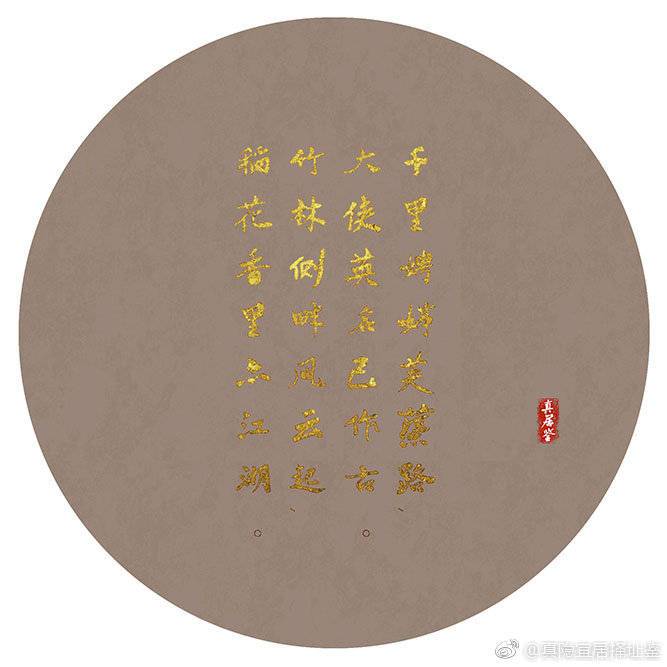 千里娉婷芙蕖路、
大侠英名已作古。
竹林侧畔风云起、
稻花香里江湖。
真居鉴
@真隐宜居择扯鉴